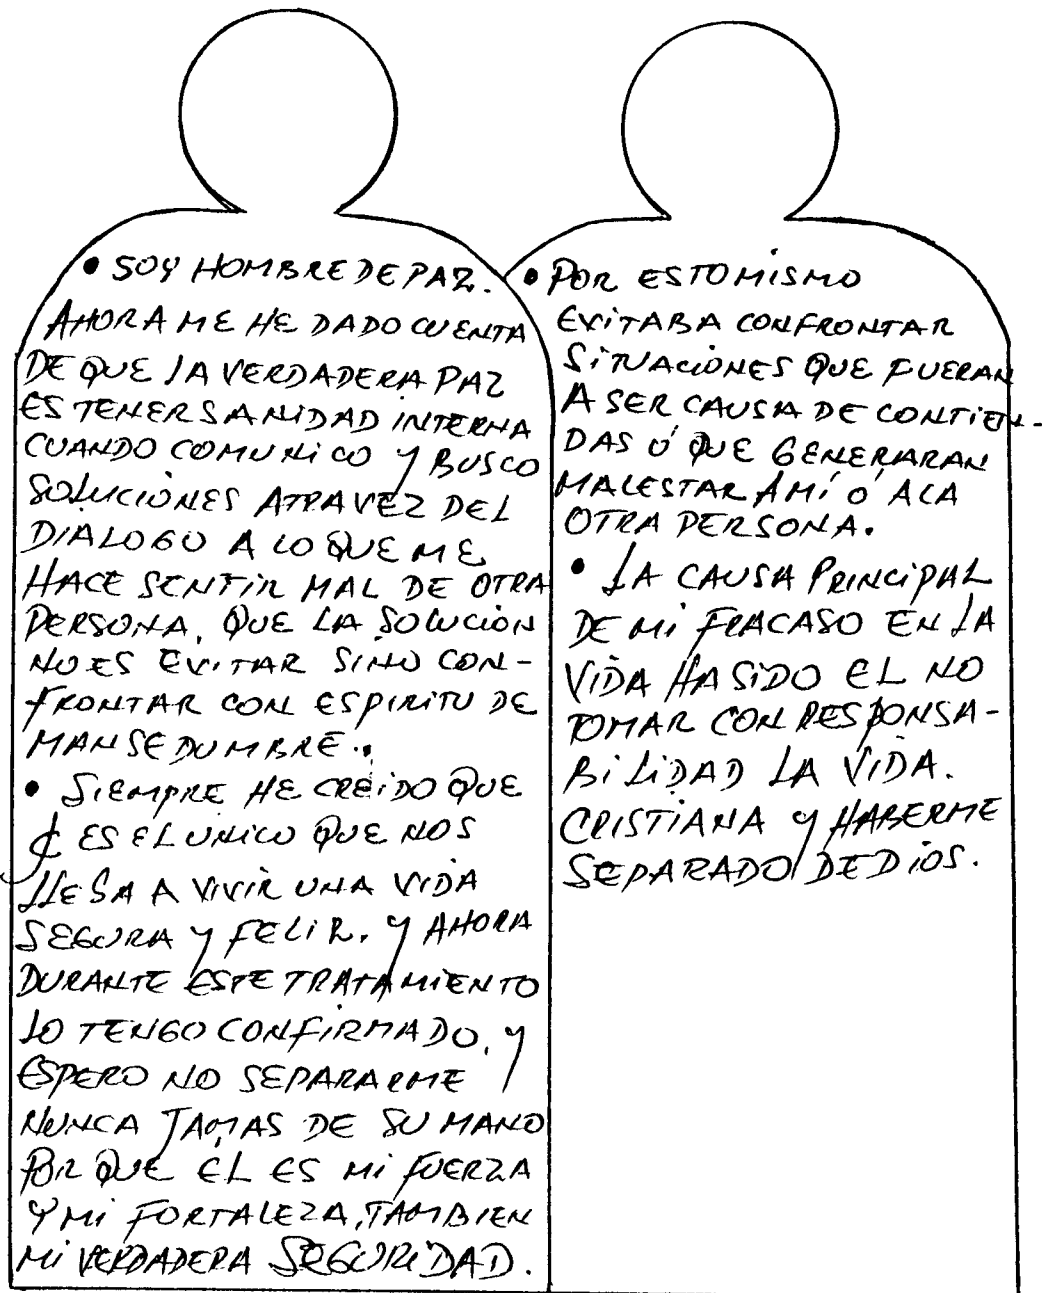 • SOY HOMBRE DE PAZ.
AHORA ME HE DADO CUENTA
DE QUE LA VERDADERA PAZ
ES TENER SANIDAD INTERNA
CUANDO COMUNICO Y BUSCO
SOLUCIONES ATRAVEZ DEL
DIALOGO A LO QUE ME
HACE SENTIR MAL DE OTRA
PERSONA, QUE LA SOLUCION
NO ES EVITAR SINO CON-
FRONTAR CON ESPIRITU DE
MANSEDUMBRE.
• SIEMPRE HE CREIDO QUE
ES EL UNICO QUE NOS
LLEGA A VIVIR UNA VIDA
SEGURA Y FELIR. Y AHORA
DURANTE ESTE TRATAMIENTO
LO TENGO CONFIRMADO, Y
ESPERO NO SEPARARME
NUNCA JAMAS DE SU MANO
POR QUE ÉL ES MI FUERZA
Y MI FORTALEZA, TAMBIEN
MI VERDADERA SEGURIDAD.
• POR ESTO MISMO
EVITABA CONFRONTAR
SITUACIONES QUE FUERAN
A SER CAUSA DE CONTIEN-
DAS Ó QUE GENERARAN
MALESTAR ÁMÍ Ó ALA
OTRA PERSONA.
• LA CAUSA PRINCIPAL
DE MI FRACASO EN LA
VIDA HA SIDO EL NO
TOMAR CON RESPONSA-
BILIDAD LA VIDA.
CRISTIANA Y HABERME
SEPARADO DE DIOS.